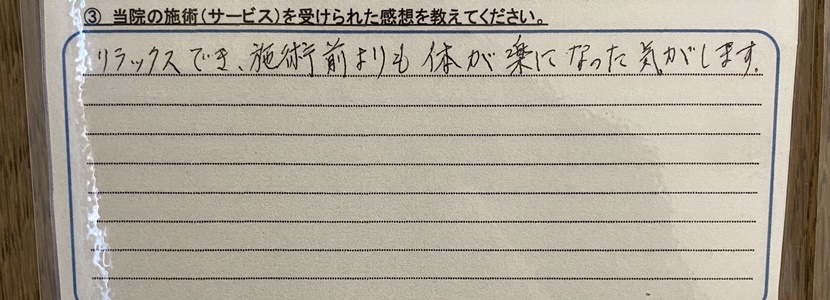 ③ 当院の施術(サービス)を受けられた感想を教えてください。
リラックスでき、施術前よりも体が楽になった気がします。